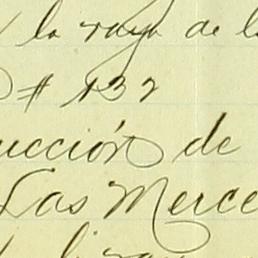 la raya de l
# 132
ucción de
Las Merce